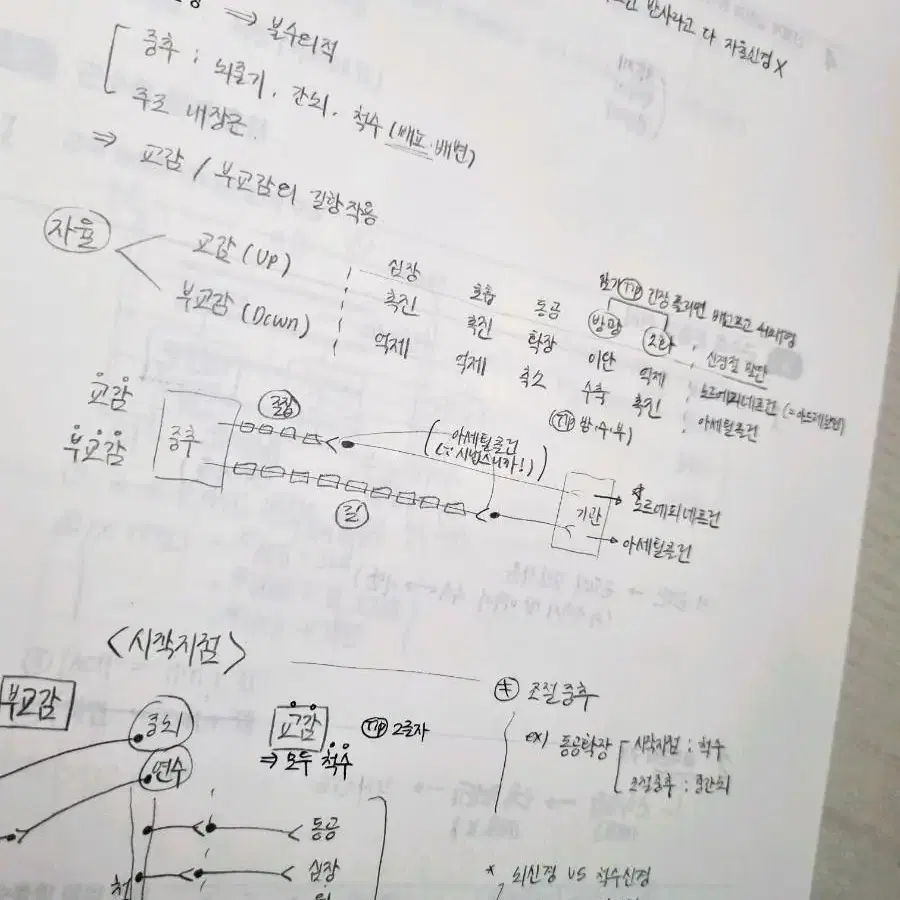 반사라고 다 자율신경 X
⇒ 불수의적
중추 : 뇌줄기, 간뇌, 척수 (배뇨·배변)
주로 내장근
⇒ 교감 / 부교감의 길항작용
자율
교감 (Up) ; 심장 호흡 동공 방광 소화 ; 신경절 말단
TIP 긴장 풀리면 배고프고
촉진 촉진 확장 이완 억제 ; 노르에피네프린
부교감 (Down) ; 억제 억제 축소 수축 촉진 ; 아세틸콜린
TIP 방·수·부)
교감
부교감
중추
짧
아세틸콜린
(∵시냅스니까!)
길
기관
노르에피네프린
아세틸콜린
<시작지점>
부교감
중뇌
연수
교감
TIP 2글자
⇒ 모두 척수
동공
심장
척
* 조절중추
ex) 동공확장
시작지점 : 척수
조절중추 : 중간뇌
* 뇌신경 VS 척수신경